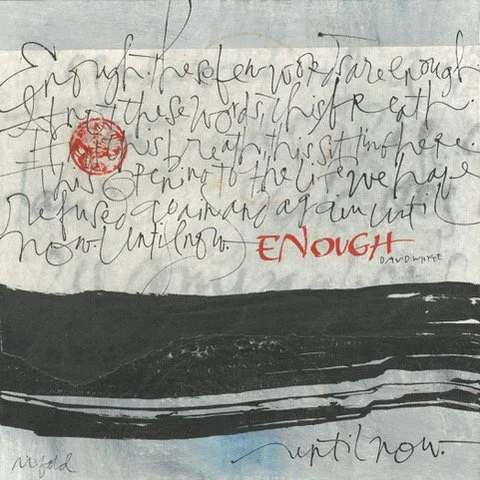 Enough. these few words are enough.
If not these words, this breath.
If not this breath, this sitting here.
This opening to the life we have
refused again and again until
now. Until now.
ENOUGH
DAVID WHYTE
until now.